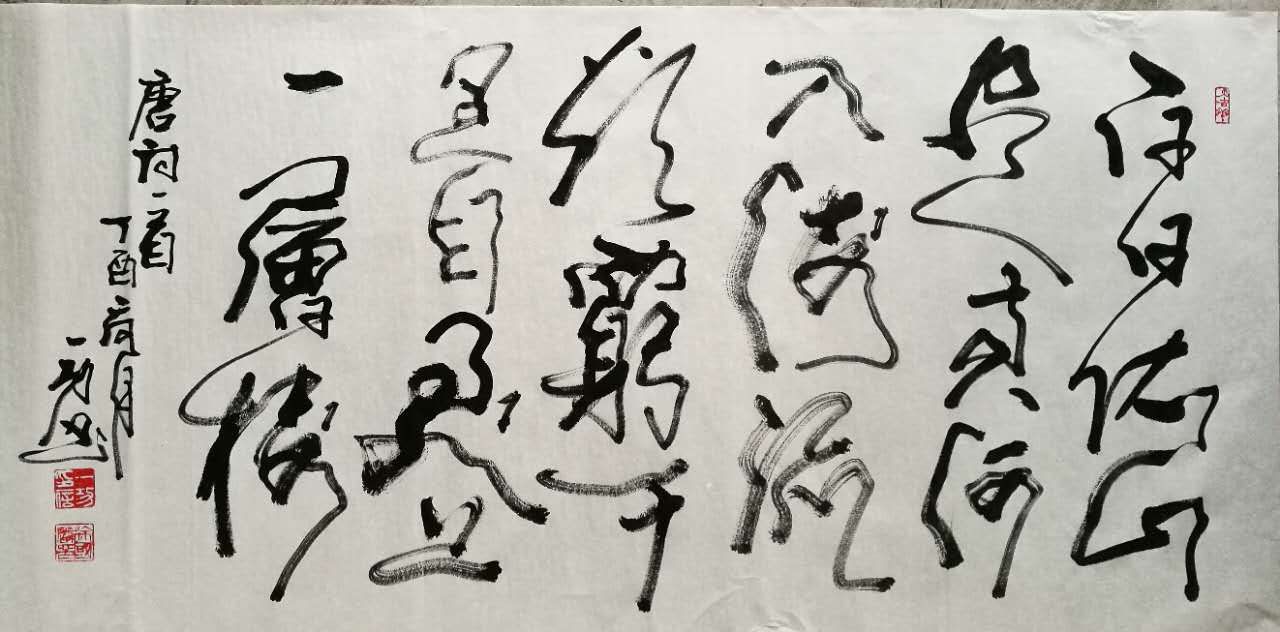 白日依山
尽黄河
入海流
欲窮千
里目更上
一層樓
唐诗一首
丁酉月
一